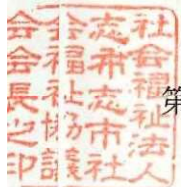 社会福祉法人
志布志市社
会福祉協議
会会長之印
第